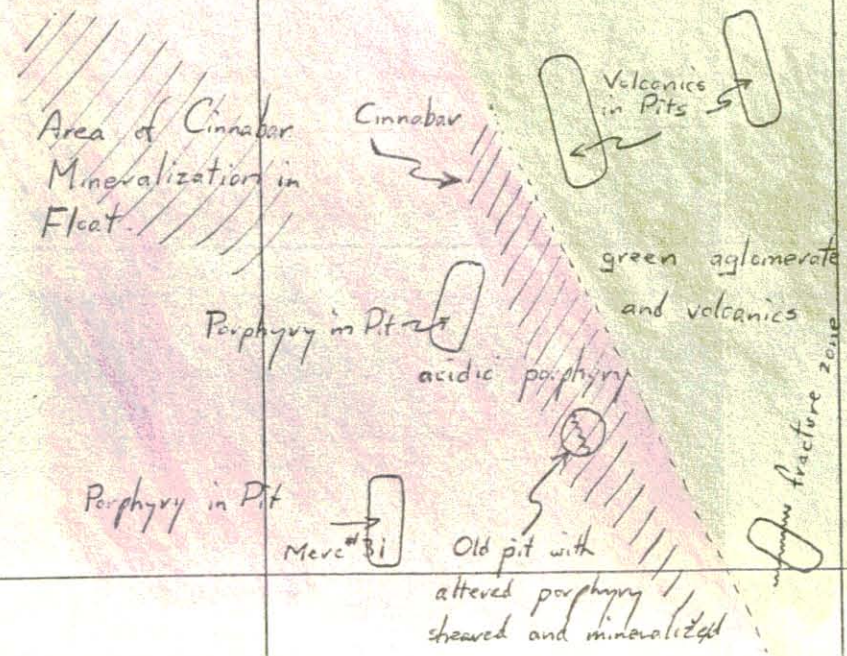 Volcanics
in Pits
Area of Cinnabar
Mineralization in
Float.
Cinnabar
green aglomerate
and volcanics
Porphyry in Pit
acidic porphyry
fracture zone
Porphyry in Pit
Merc #3i
Old pit with
altered porphyry
sheared and mineralized